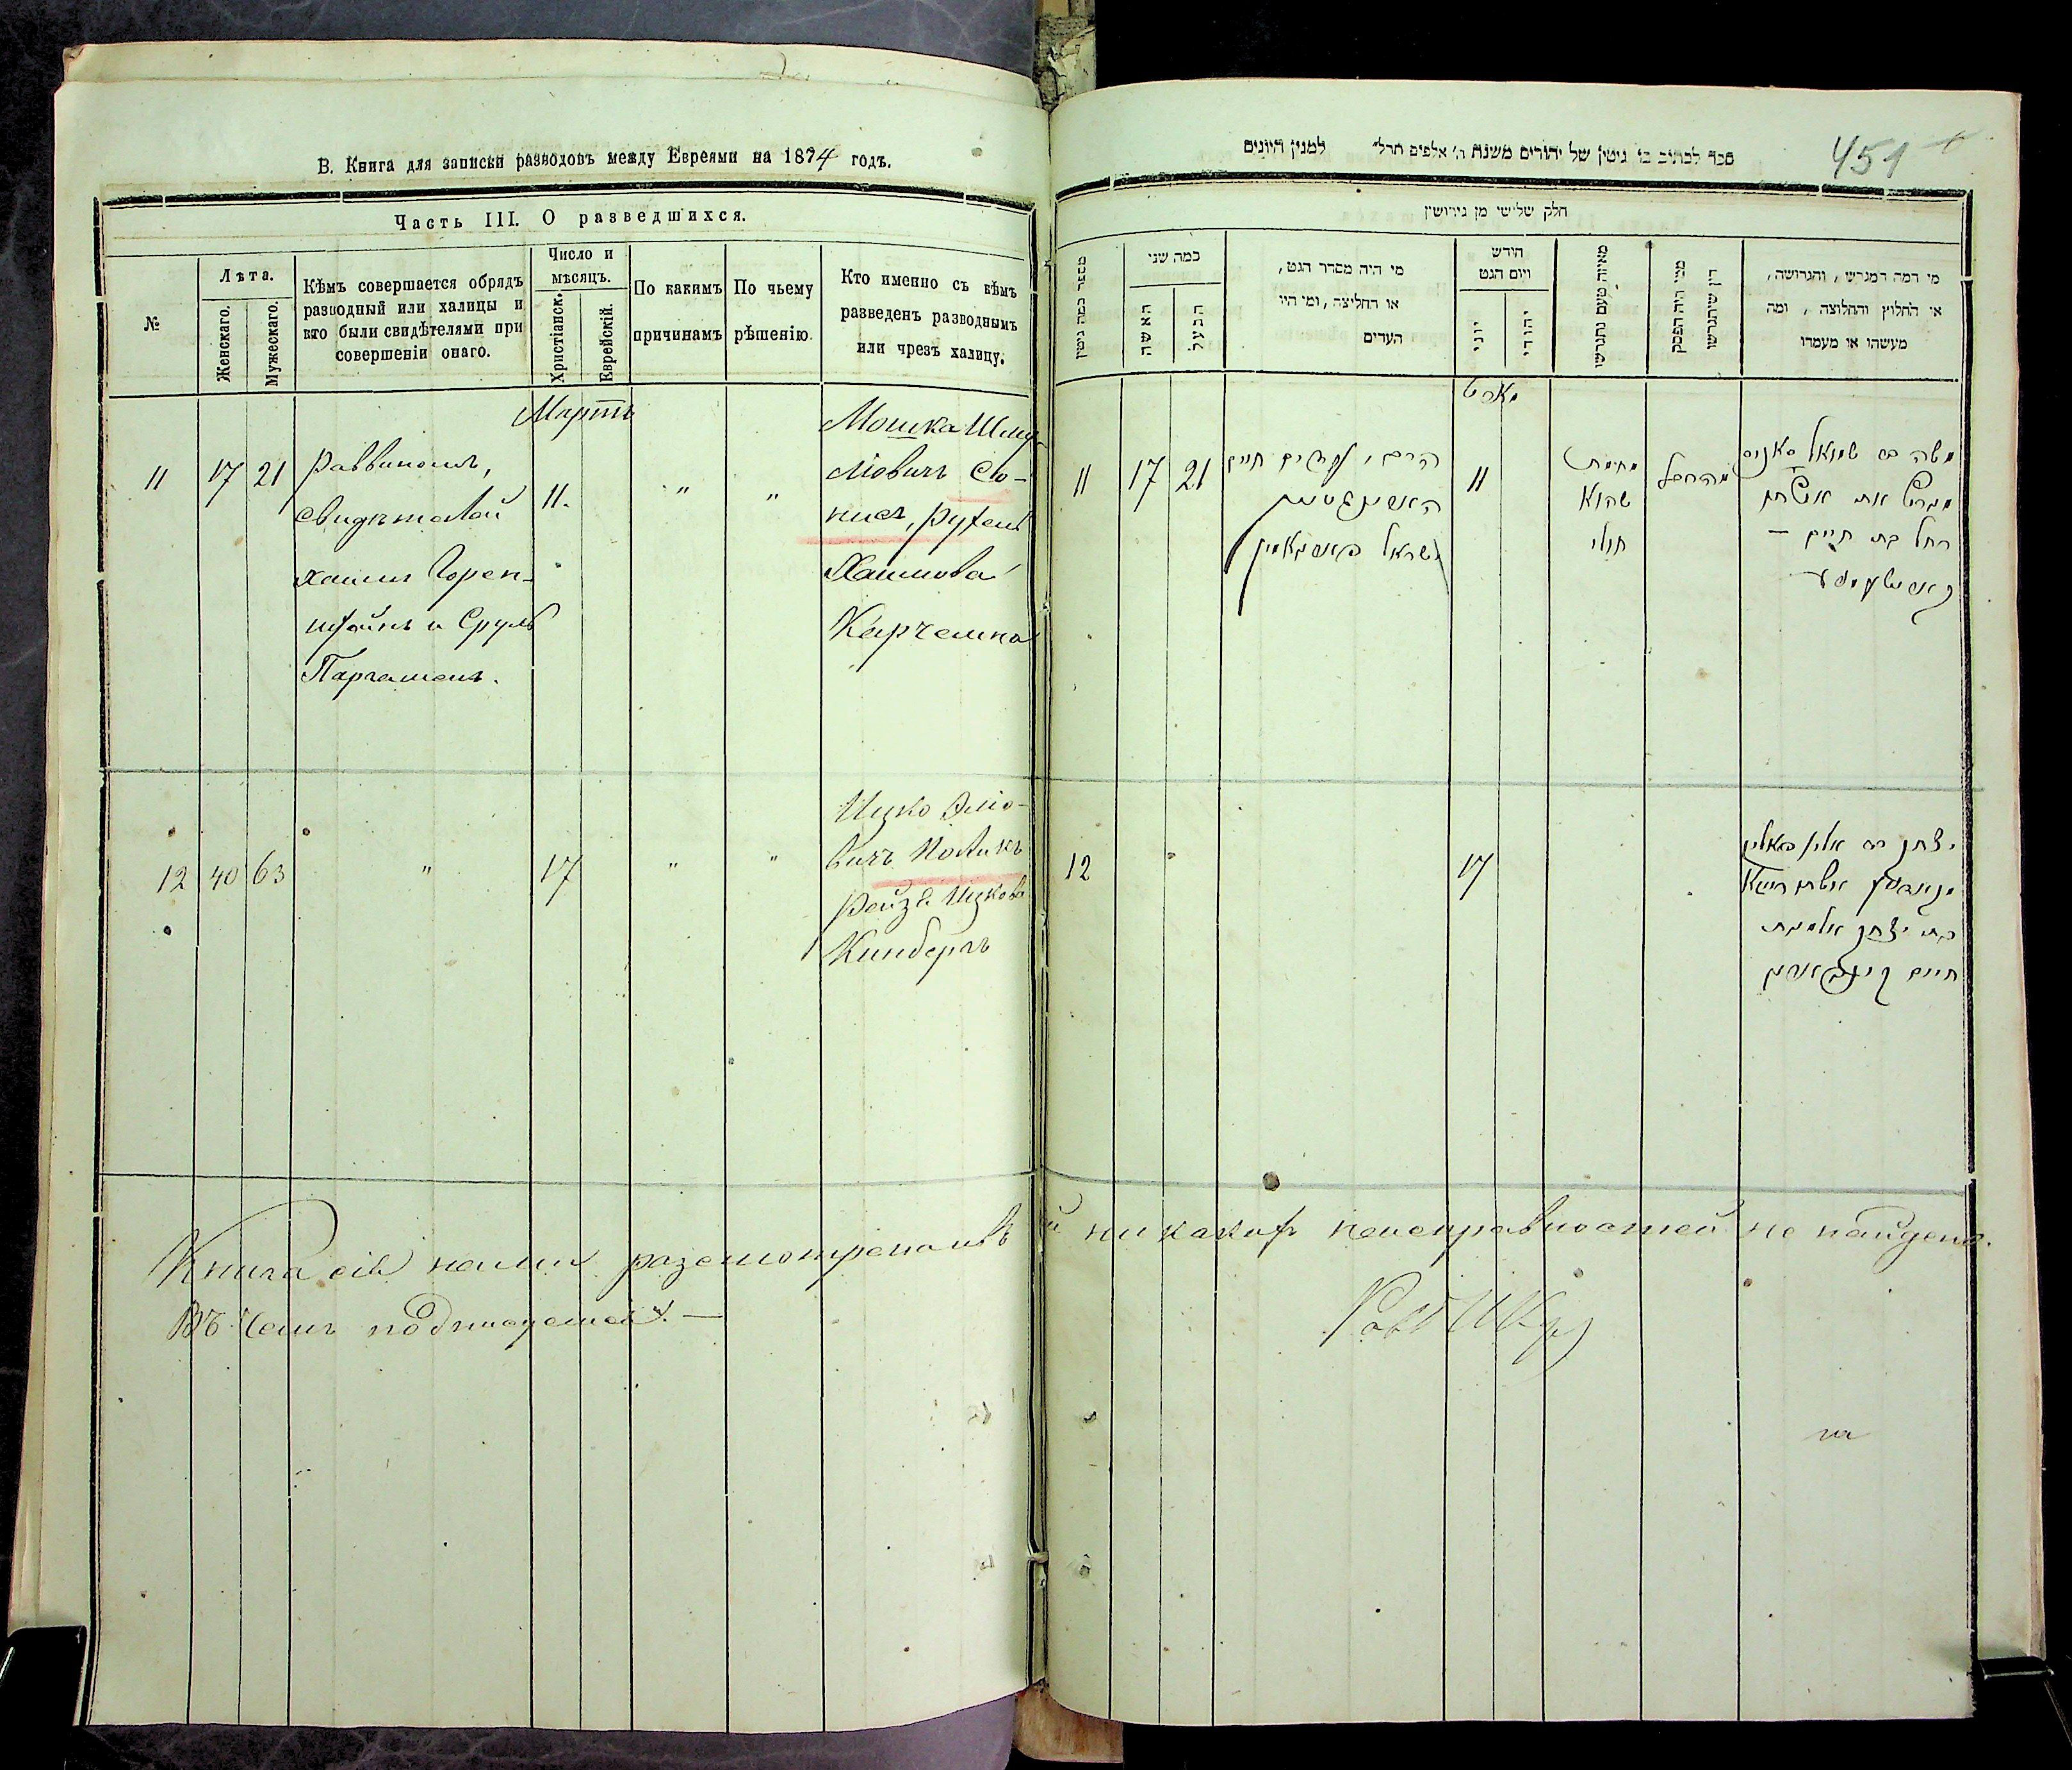 В. Книга для записки разводовъ между Евреями на 1874 годъ.
Часть III. О разведшихся.
№
Лѣта.
Женскаго.
Мужескаго.
Кѣмъ совершается обрядъ
разводный или халицы и
кто были свидѣтелями при
совершеніи онаго.
Число и
мѣсяцъ.
Христіанск.
Еврейскій.
По какимъ
причинамъ
По чьему
рѣшенію
Кто именно съ кѣмъ
разведенъ разводнымъ
или чрезъ халицу.
Мартъ
11 17 21
Раввиномъ,
свидѣтелей
Хаимъ Горен-
штейнъ и Сруль
Паргаменъ.
11.
" "
Мошка Шму-
ліовичъ Сю-
нисъ, Рухель
Хаимова
Карчемна
12 40 63 " 17 " "
Ицко Эліо-
вичъ Поликъ
Рейза Ицкова
Кинбергъ
Книга сія нами разсмотрена и въ
ней никакихъ неисправностей не найдено.
Въ чемъ подписуемся. —
451
ספר לכתוב בו גיטין של יהודים משנת ה' אלפים תרל" למנין היונים
חלק שלישי מן גירושין
מספר כמה גיטין
כמה שני
האשה
הבעל
מי היה מסדר הגט,
או החליצה, ומי היו
העדים
חודש
ויום הגט
יוני
יהודי
מאיזה טעם נתגרשו
מפי היה הפסק
דין שיתגרשו
מי המה המגרש, והגרושה,
או החלוץ והחלוצה, ומה
מעשהו או מעמדו
מארט
11 17 21
11
מחמת
שהוא
חולי
משה בר שמואל
מגרש את אשתו
רחל בת חיים –
12 17
יצחק בר אלי'
בת יצחק אלמנת
חיים